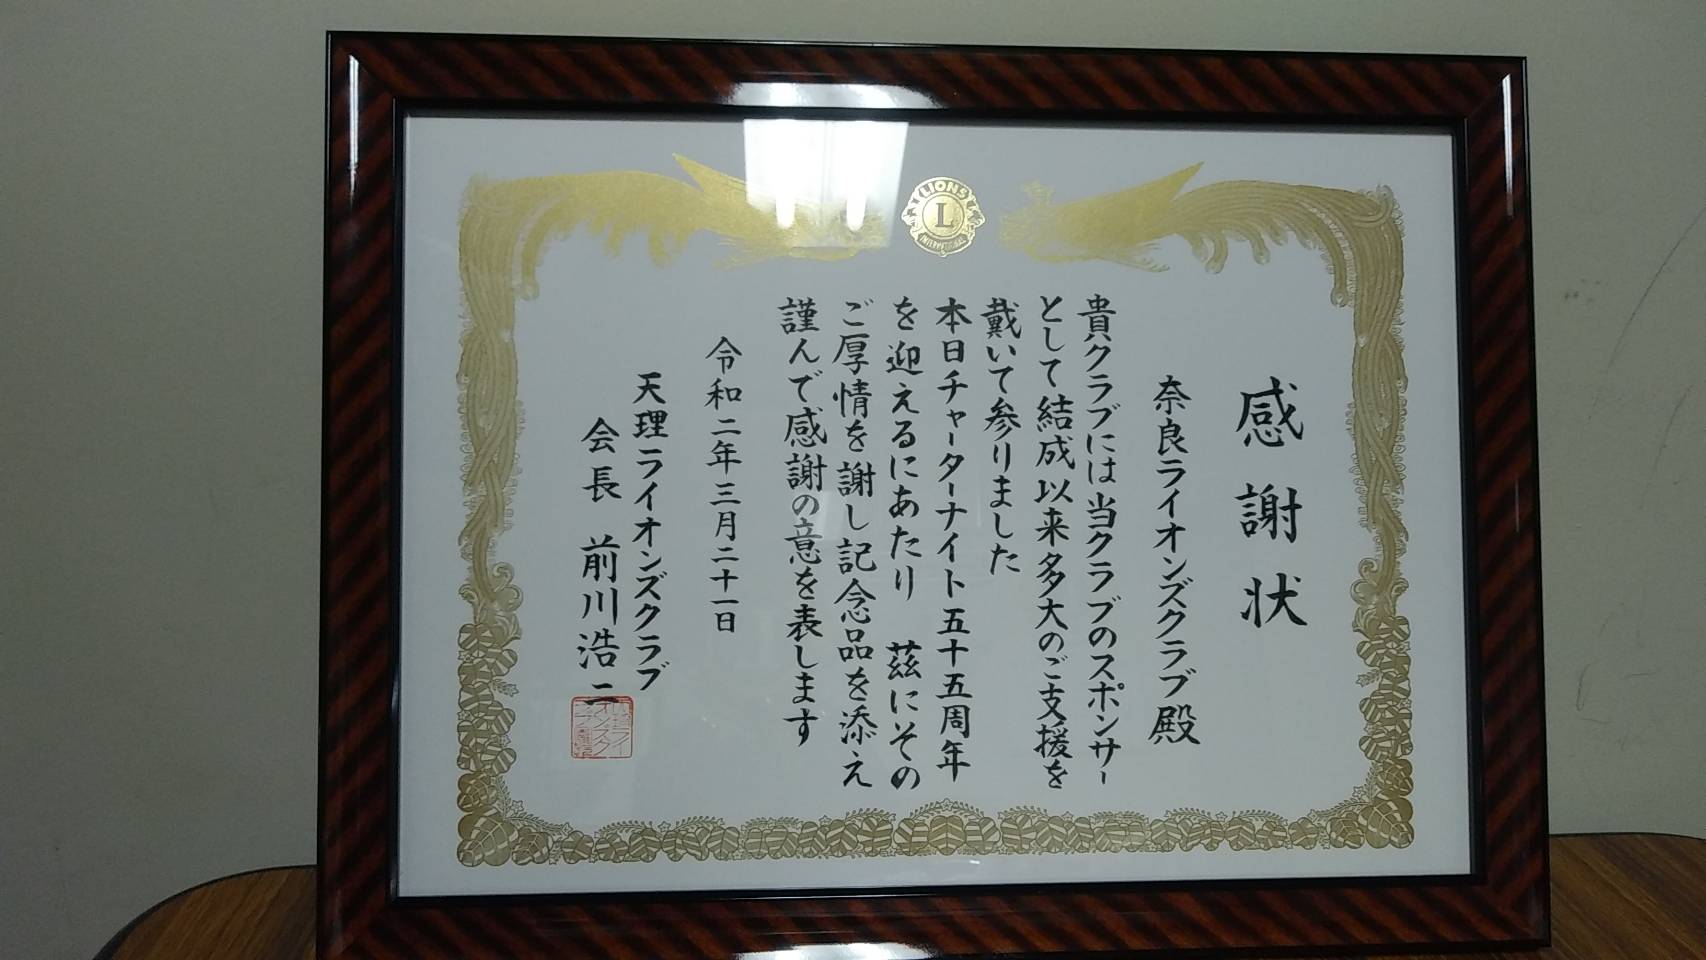 LIONS
L
INTERNATIONAL
感謝状
奈良ライオンズクラブ殿
貴クラブには当クラブのスポンサー
として結成以来多大のご支援を
戴いて参りました
本日チャーターナイト五十五周年
を迎えるにあたり 茲にその
ご厚情を謝し記念品を添え
謹んで感謝の意を表します
令和二年三月二十一日
天理ライオンズクラブ
会長 前川浩二